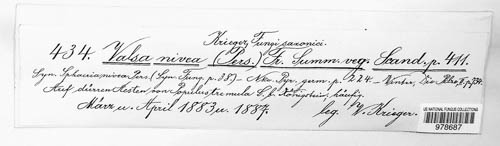 Krieger, Fungi saxonici.
434. Valsa nivea (Pers.) Fr. Summ. veg. Scand. p. 411.
Syn. Sphaeria nivea Pers. (Syn. Fung. p. 38). – Nke. Pyr. germ. p. 224. Winter, Die Pilze II, p. 734.
Auf dürren Aesten von Populus tremula L. b. Königstein, häufig.
März u. April 1883 u. 1887. leg. W. Krieger.
US NATIONAL FUNGUS COLLECTIONS
978687